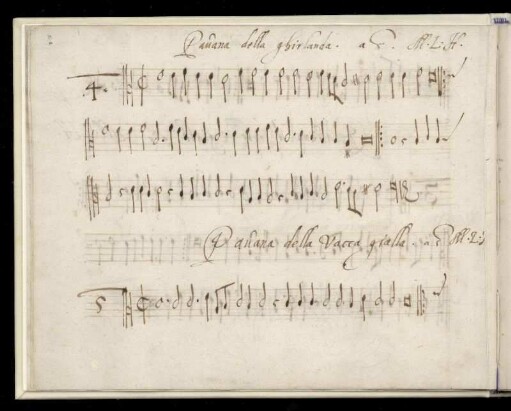 Pavana della ghirlanda. a 5. M. L. H.
4.
Pavana della vacca gialla. a 5 M. L.
5